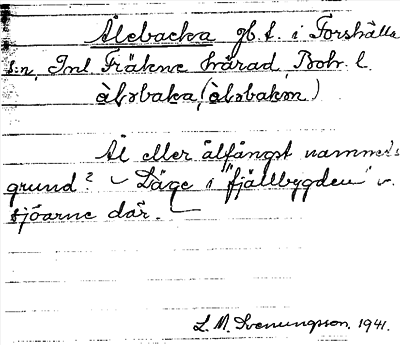 Ålebacka gbt. i Forshälla
s:n, Inl. Fräkne härad, Boh. l.
àləbaka, (àləbakən)
Ål eller ålfångst namnets
grund? – Läge i "fjällbygden" v.
sjöarne där. –
L. M. Svenungsson. 1941.